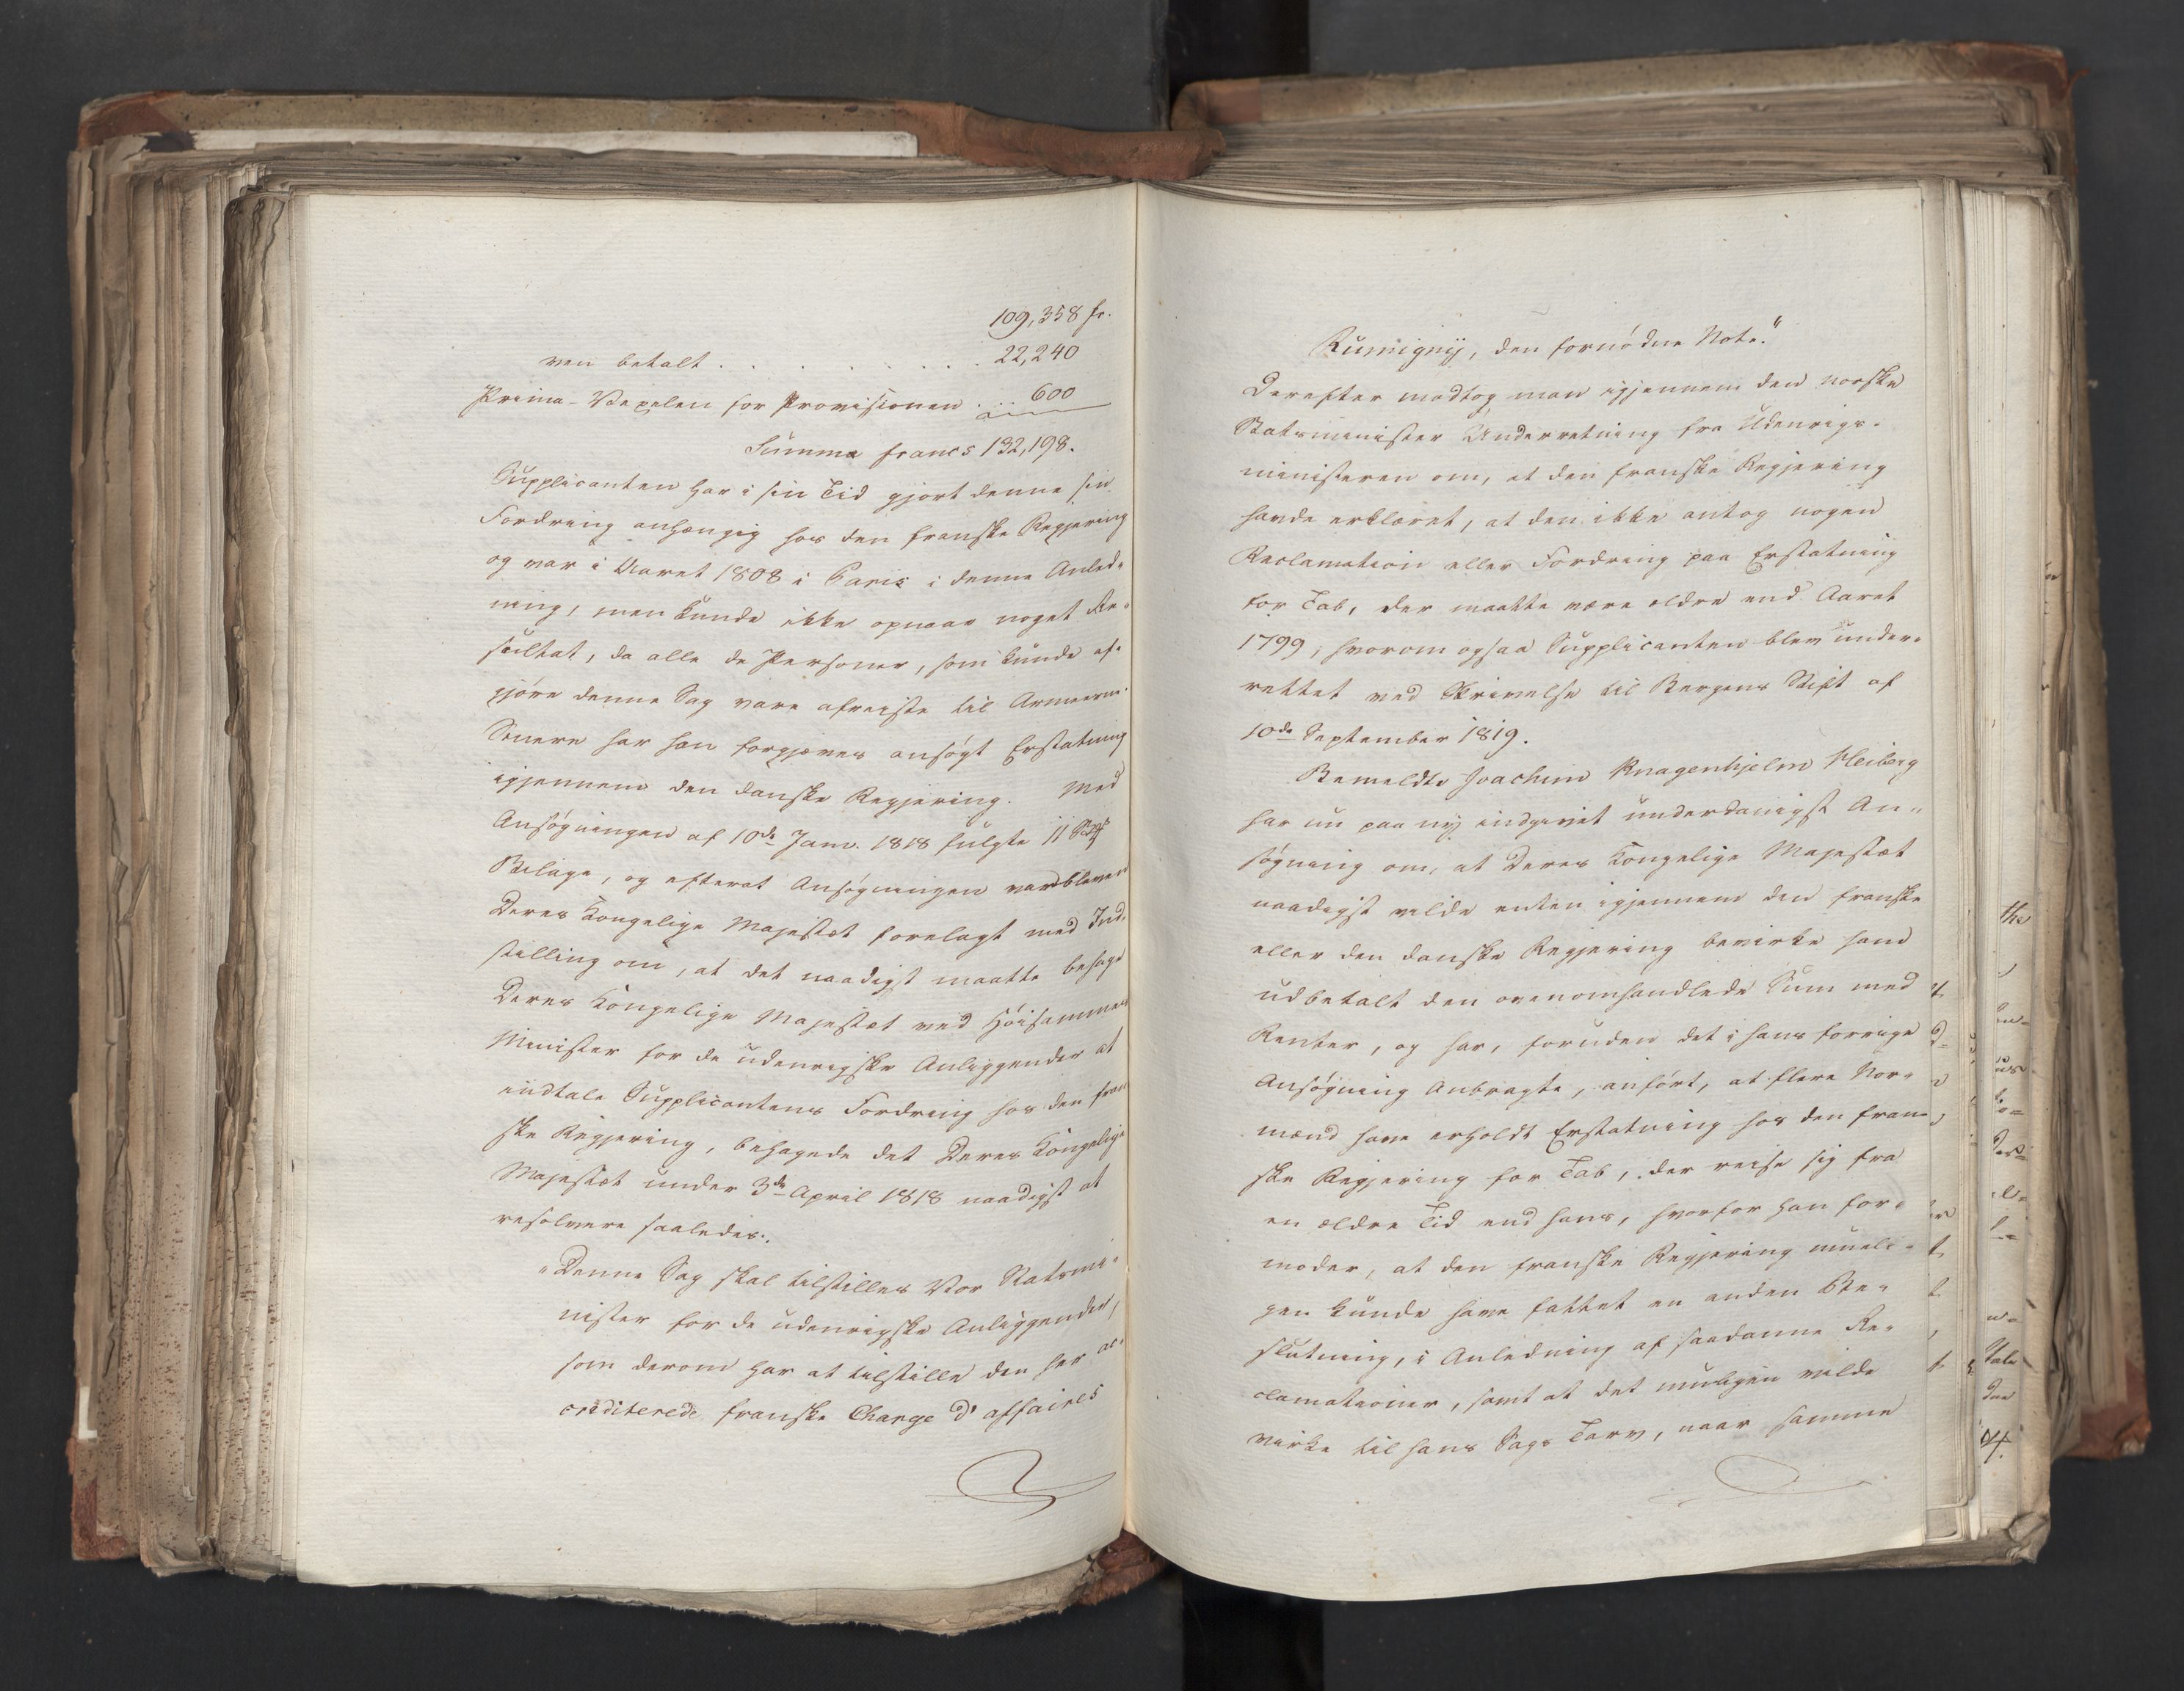 109,358 fr.
ven betalt . . . . . . . . 22,240
Prima-Vexelen for Provisionen . . . 600
Summa francs 132,198.
Supplicanten har i sin Tid gjort denne sin
Fordring anhængig hos den franske Regjering
og var i Aaret 1808 i Paris i denne Anled-
ning, men kunde ikke opnaae noget Re-
sultat, da alle de Personer, som kunde af-
gjøre denne Sag vare afreiste til Armeerne.
Senere har han forgjæves ansøgt Erstatning
igjennem den danske Regjering. Med
Ansøgningen af 10de Janr. 1818 fulgte 11
Bilage, og efterat Ansøgningen var bleven
Deres Kongelige Majestæt forelagt med Ind-
stilling om, at det naadigst maatte behage
Deres Kongelige Majestæt ved Høisammes
Minister for de udenrigske Anliggender at
indtale Supplicantens Fordring hos den fran-
ske Regjering, behagede det Deres Kongelige
Majestæt under 3de April 1818 naadigst at
resolvere saaledes:
"Denne Sag skal tilstilles Vor Statsmi-
nister for de udenrigske Anliggender,
som derom har at tilstille den her ac-
crediterede franske Charge d'affaires
Rumigny, den fornødne Note."
Derefter modtog man igjennem den norske
Statsminister Underretning fra Udenrigs-
ministeren om, at den franske Regjering
havde erklæret, at den ikke antog nogen
Reclamation eller Fordring paa Erstatning
for Tab, der maatte være ældre end Aaret
1799, hvorom ogsaa Supplicanten blev under-
rettet ved Skrivelse til Bergens Stift af
10de September 1819.
Bemeldte Joachim Knagenhjelm Heiberg
har nu paa ny indgivet underdanigst An-
søgning om, at Deres Kongelige Majestæt
naadigst vilde enten igjennem den franske
eller den danske Regjering bevirke ham
udbetalt den ovenomhandlede Sum med
Renter, og har, foruden det i hans forrige
Ansøgning Anbragte, anført, at flere Nor-
mænd have erholdt Erstatning hos den fran-
ske Regjering for Tab, der reise sig fra
en ældre Tid end hans, hvorfor han for-
moder, at den franske Regjering mueli-
gen kunde have fattet en anden Be-
slutning, i Anledning af saadanne Re-
clamationer, samt at det muligen vilde
virke til hans Sags Tarv, naar samme